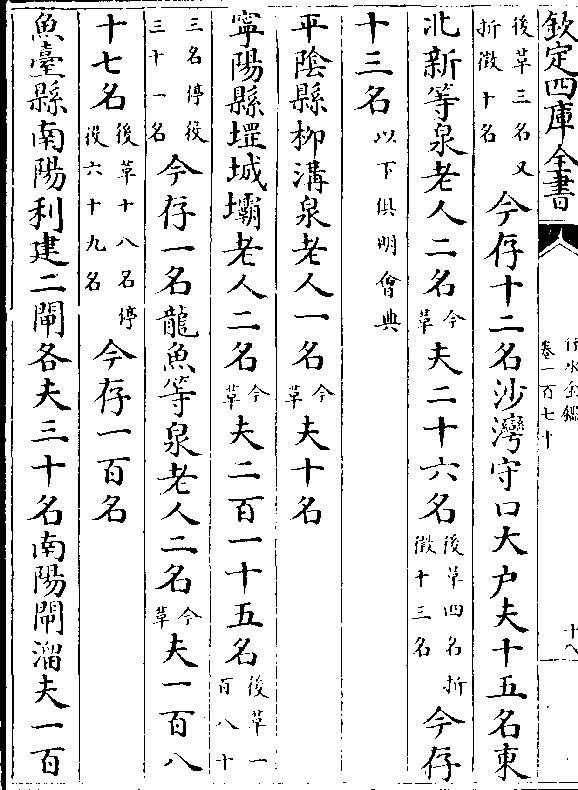 欽定四庫全書
行水金鑑
卷一百七十
十八
後革三名又折徵十名今存十二名沙灣守口大户夫十五名東
北新等泉老人二名今革夫二十六名後革四名折徵十三名今存
十三名以下俱明會典
平陰縣柳溝泉老人一名今革夫十名
寧陽縣堽城壩老人二名今革夫二百一十五名後革一百八十
三名停役三十一名今存一名龍魚等泉老人二名今革夫一百八
十七名後革十八名停役六十九名今存一百名
魚臺縣南陽利建二閘各夫三十名南陽閘溜夫一百